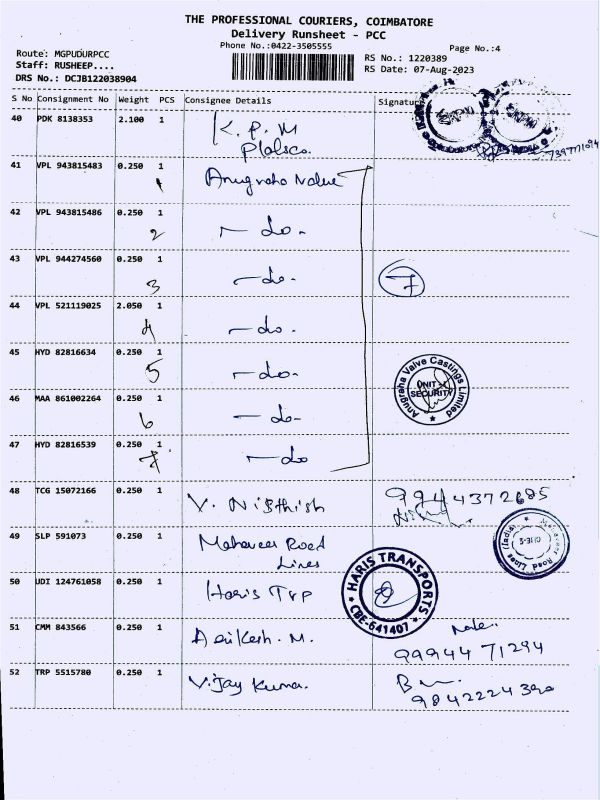 THE PROFESSIONAL COURIERS, COIMBATORE
Delivery Runsheet - PCC
Phone No.:0422-3505555
Page No.:4
Route: MGPUDURPCC
Staff: RUSHEEP....
DRS No.: DCJB122038904
RS No.: 1220389
RS Date: 07-Aug-2023
S No Consignment No Weight PCS Consignee Details Signature
40 PDK 8138353 2.100 1 K. P. M
41 VPL 943815483 0.250 1 Anugraha
1
42 VPL 943815486 0.250 1 - do -
2
43 VPL 944274560 0.250 1 - do - 7
3
44 VPL 521119025 2.050 1 - do -
4
45 HYD 82816634 0.250 1 - do -
5
Anugraha Valve Castings Limited
UNIT
SECURITY
46 MAA 861002264 0.250 1 - do -
6
47 HYD 82816539 0.250 1 - do
7
48 TCG 15072166 0.250 1 V. 9944372685
49 SLP 591073 0.250 1 Mahaveer Road
Lines
Mahaveer Road Lines (India)
50 UDI 124761058 0.250 1 Haris Trp
HARIS TRANSPORTS
CBE-641407
51 CMM 843566 0.250 1
99944 71294
52 TRP 5515780 0.250 1 Vijay Kumar.